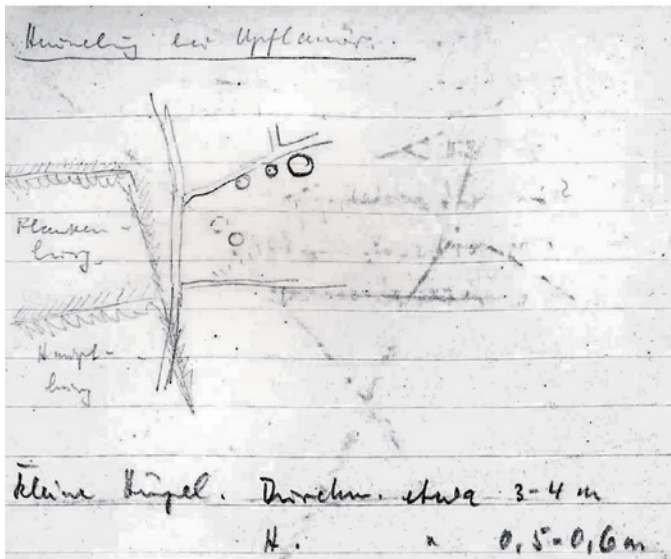 Heuneburg bei Upflamör.
Flanken-
burg.
Haupt-
burg
Kleine Hügel. Durchm. etwa 3-4 m
H. " 0,5-0,6 m